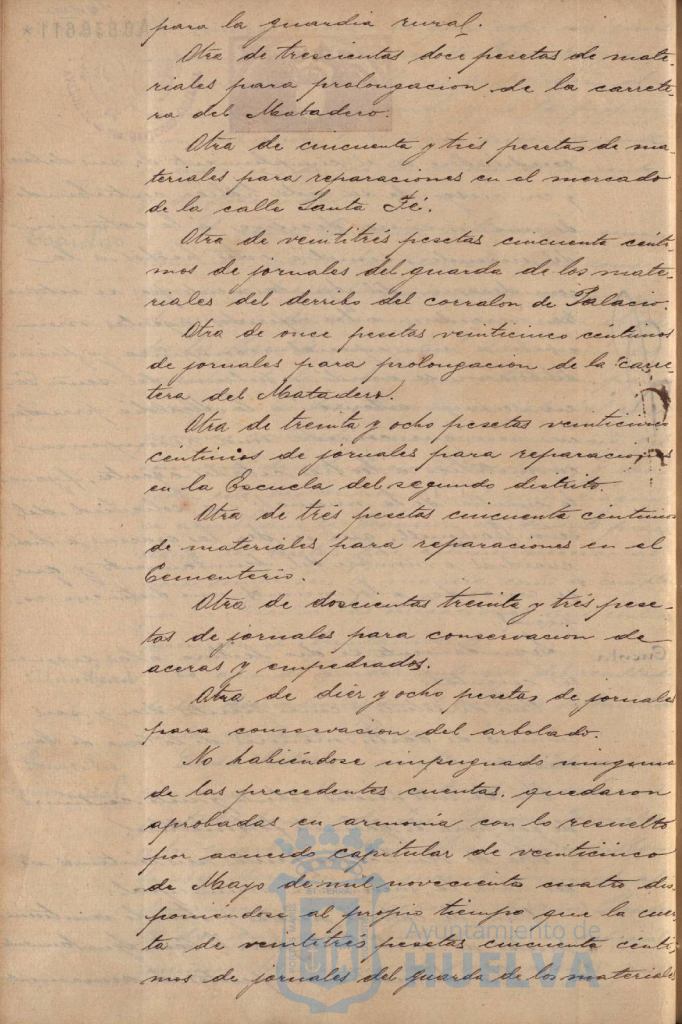 para la guardia rural.
Otra de trescientas doce pesetas de mate-
riales para prolongacion de la carrete-
ra del Matadero.
Otra de cincuenta y trés pesetas de ma-
teriales para reparaciones en el mercado
de la calle Santa Fé.
Otra de veintitrés pesetas cincuenta cénti-
mos de jornales del guarda de los mate-
riales del derribo del corralon de Palacio.
Otra de once pesetas veinticinco céntimos
de jornales para prolongacion de la carre-
tera del Matadero.
Otra de treinta y ocho pesetas veinticinco
centimos de jornales para reparaciones
en la Escuela del segundo distrito.
Otra de trés pesetas cincuenta céntimos
de materiales para reparaciones en el
Cementerio.
Otra de doscientas treinta y trés pese-
tas de jornales para conservacion de
aceras y empedrados.
Otra de diez y ocho pesetas de jornales
para conservacion del arbolado.
No habiéndose impugnado ninguna
de las precedentes cuentas, quedaron
aprobadas en armonía con lo resuelto
por acuerdo capitular de veinticinco
de Mayo de mil novecientos cuatro dis-
poniendose al propio tiempo que la cuen-
ta de veintitrés pesetas cincuenta cénti-
mos de jornales del guarda de los materiales
Ayuntamiento de
HUELVA